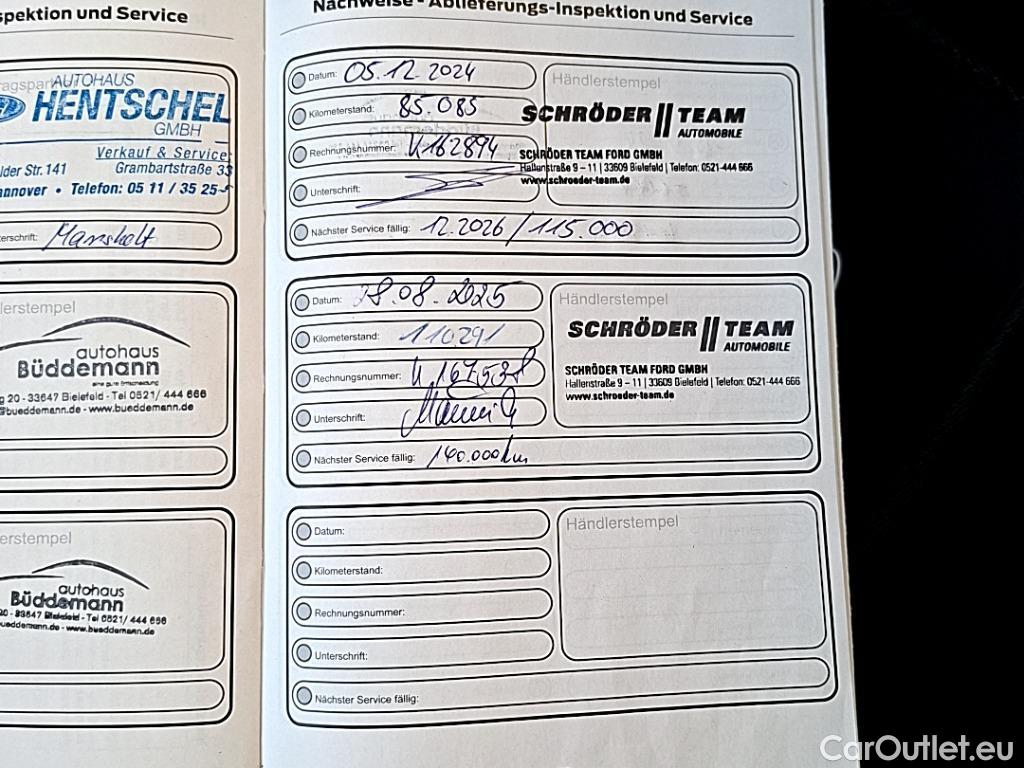 spektion und Service
AUTOHAUS
HENTSCHEL
GMBH
Verkauf & Service
lder Str. 141 Grambartstraße 33
annover • Telefon: 05 11 / 35 25
erschrift:
lerstempel
autohaus
Büddemann
eine gute Entscheidung
g 20 - 33647 Bielefeld - Tel 0521/ 444 666
@bueddemann.de - www.bueddemann.de
erstempel
autohaus
Büddemann
20 - 33647 Bielefeld - Tel 0521/ 444 666
ueddemann.de - www.bueddemann.de
Nachweise - Ablieferungs-Inspektion und Service
Datum: 05.12.2024
Kilometerstand: 85.085
Rechnungsnummer: U162894
Unterschrift:
Nächster Service fällig: 12.2026 / 115.000
Händlerstempel
SCHRÖDER TEAM
AUTOMOBILE
SCHRÖDER TEAM FORD GMBH
Hallenstraße 9 – 11 | 33609 Bielefeld | Telefon: 0521-444 666
www.schroeder-team.de
Datum: 28.08.2025
Kilometerstand: 110291
Rechnungsnummer: U 167538
Unterschrift:
Nächster Service fällig: 140.000km
Händlerstempel
SCHRÖDER TEAM
AUTOMOBILE
SCHRÖDER TEAM FORD GMBH
Hallenstraße 9 – 11 | 33609 Bielefeld | Telefon: 0521-444 666
www.schroeder-team.de
Datum:
Kilometerstand:
Rechnungsnummer:
Unterschrift:
Nächster Service fällig:
Händlerstempel
CarOutlet.eu